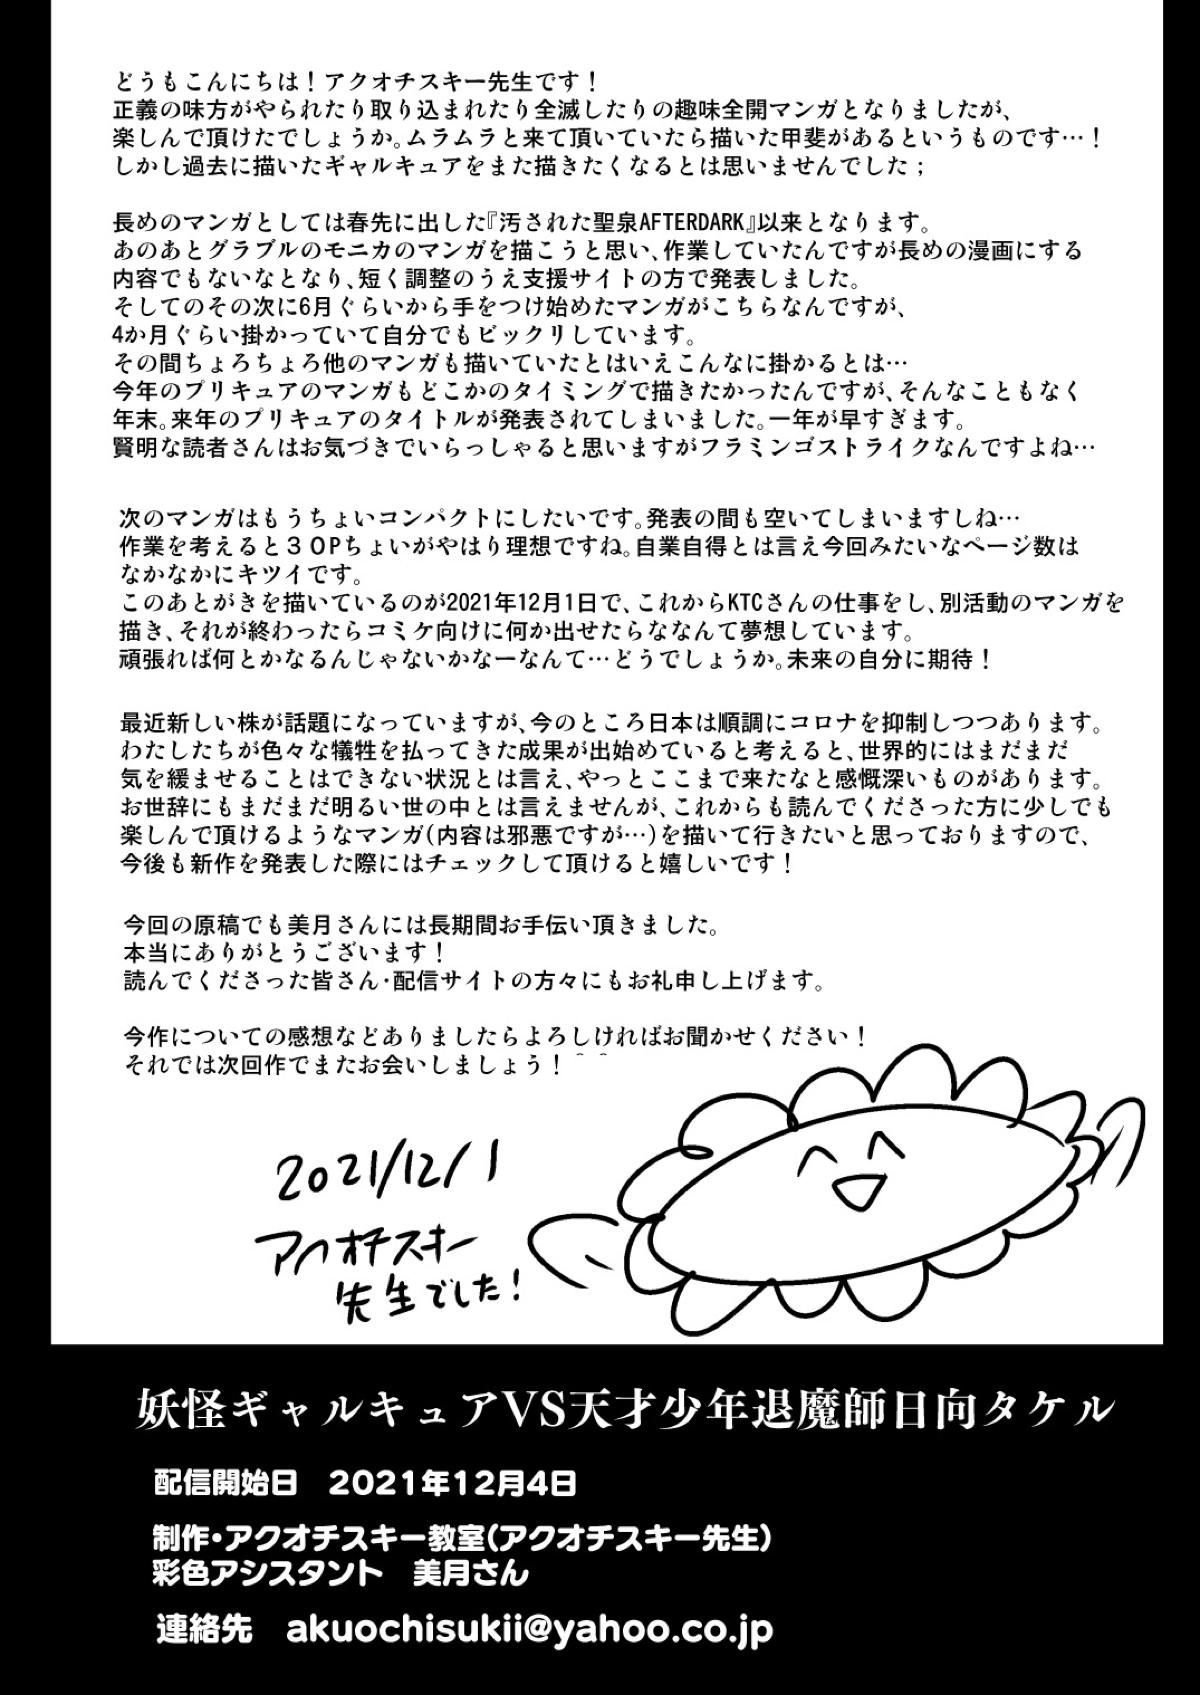 どうもこんにちは！アクオチスキー先生です！
正義の味方がやられたり取り込まれたり全滅したりの趣味全開マンガとなりましたが、
楽しんで頂けたでしょうか。ムラムラと来て頂いていたら描いた甲斐があるというものです…！
しかし過去に描いたギャルキュアをまた描きたくなるとは思いませんでした；
長めのマンガとしては春先に出した『汚された聖泉AFTERDARK』以来となります。
あのあとグラブルのモニカのマンガを描こうと思い、作業していたんですが長めの漫画にする
内容でもないなとなり、短く調整のうえ支援サイトの方で発表しました。
そしてのその次に6月ぐらいから手をつけ始めたマンガがこちらなんですが、
4か月ぐらい掛かっていて自分でもビックリしています。
その間ちょろちょろ他のマンガも描いていたとはいえこんなに掛かるとは…
今年のプリキュアのマンガもどこかのタイミングで描きたかったんですが、そんなこともなく
年末。来年のプリキュアのタイトルが発表されてしまいました。一年が早すぎます。
賢明な読者さんはお気づきでいらっしゃると思いますがフラミンゴストライクなんですよね…
次のマンガはもうちょいコンパクトにしたいです。発表の間も空いてしまいますしね…
作業を考えると３０Pちょいがやはり理想ですね。自業自得とは言え今回みたいなページ数は
なかなかにキツイです。
このあとがきを描いているのが2021年12月1日で、これからKTCさんの仕事をし、別活動のマンガを
描き、それが終わったらコミケ向けに何か出せたらななんて夢想しています。
頑張れば何とかなるんじゃないかなーなんて…どうでしょうか。未来の自分に期待！
最近新しい株が話題になっていますが、今のところ日本は順調にコロナを抑制しつつあります。
わたしたちが色々な犠牲を払ってきた成果が出始めていると考えると、世界的にはまだまだ
気を緩ませることはできない状況とは言え、やっとここまで来たなと感慨深いものがあります。
お世辞にもまだまだ明るい世の中とは言えませんが、これからも読んでくださった方に少しでも
楽しんで頂けるようなマンガ(内容は邪悪ですが…)を描いて行きたいと思っておりますので、
今後も新作を発表した際にはチェックして頂けると嬉しいです！
今回の原稿でも美月さんには長期間お手伝い頂きました。
本当にありがとうございます！
読んでくださった皆さん・配信サイトの方々にもお礼申し上げます。
今作についての感想などありましたらよろしければお聞かせください！
それでは次回作でまたお会いしましょう！＾＾
2021/12/1
アクオチスキー
先生でした！
妖怪ギャルキュアVS天才少年退魔師日向タケル
配信開始日　2021年12月4日
制作・アクオチスキー教室（アクオチスキー先生）
彩色アシスタント　美月さん
連絡先　akuochisukii@yahoo.co.jp